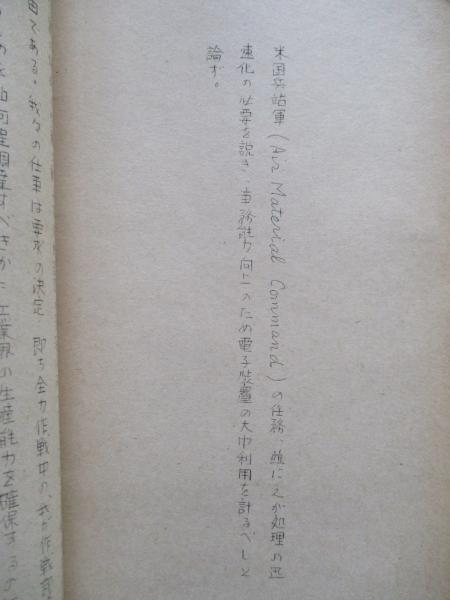 米国兵站軍(Air Material Command)の任務、並にこが処理の迅
速化の必要を説き、事務能力向上のため電子装置の大巾利用を計るべしと
論ず。
由である。我々の仕事は要求の決定 即ち全力作戦中の、我が作戦部
何程調達すべきか、工業界の生産能力を確保するの